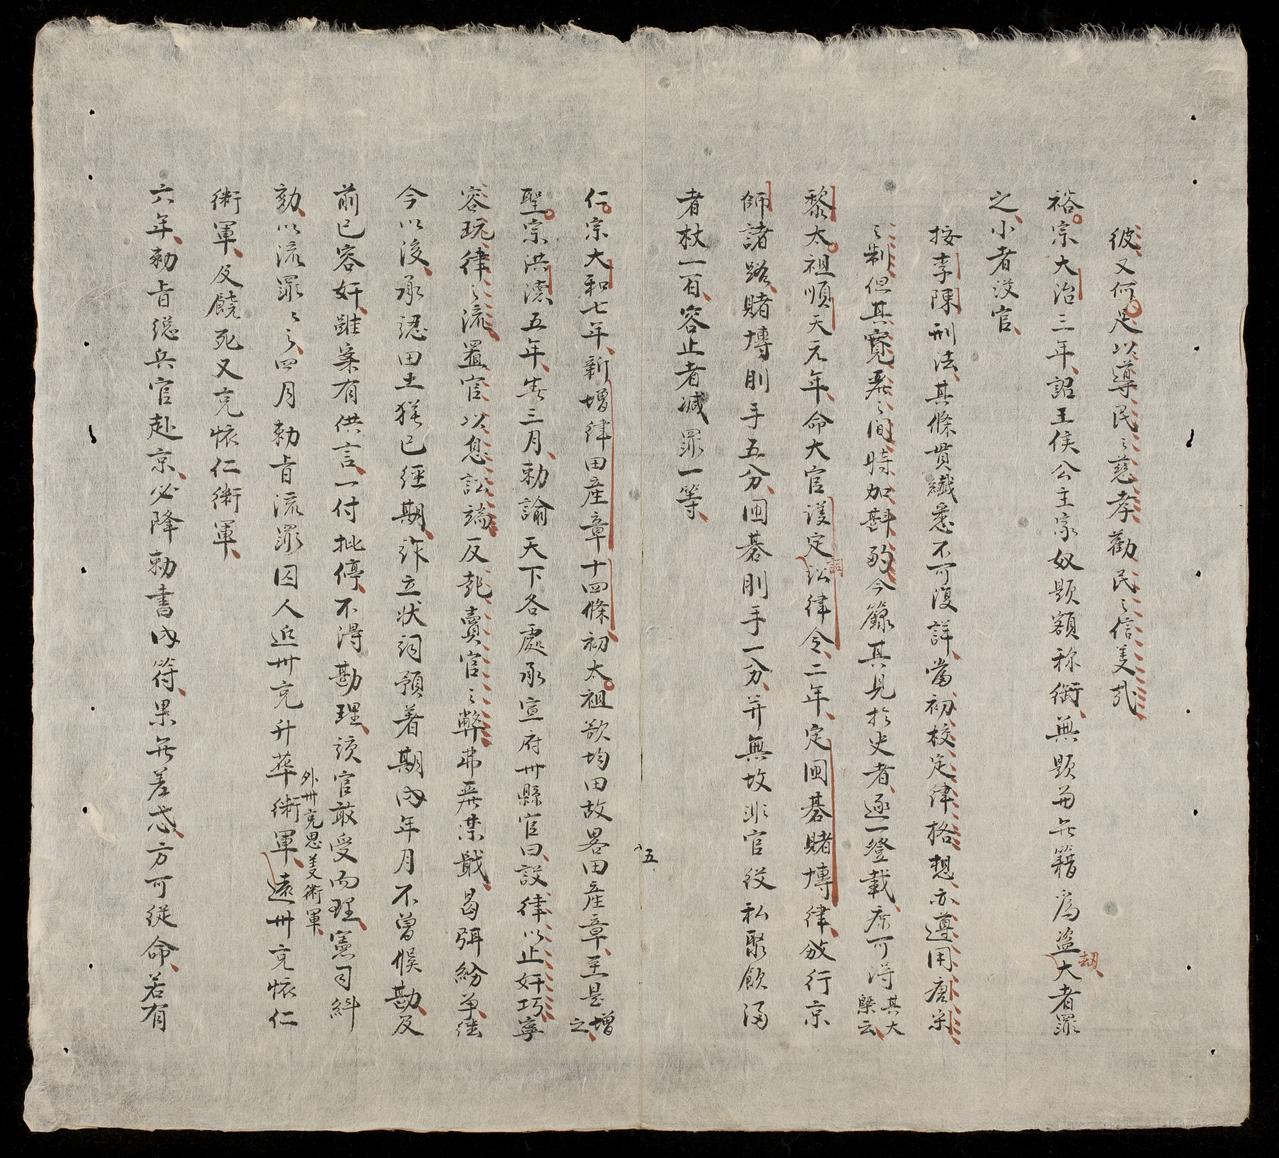 彼又何足以導民之慈孝勸民之信美哉
裕宗大治三年詔王侯公主家奴題額称銜無題而無籍為盜劫大者罪
之小者没官
按李陳刑法其條貫纖悉不可復詳當初校定律格想亦遵用唐宋
之制但其寬嚴之間時加斟酌今錄其見於史者逐一登載亦可得其大槩云
黎太祖順天元年命大官議定詞訟律令二年定囲碁賭博律放行京
師諸路賭博刖手五分囲碁刖手一分并無故非官役私聚飲酒
者杖一百容止者减罪一等
仁宗大和七年新增律田産章十四條初太祖欲均田故畧田産章至是增之
聖宗洪德五年春三月勅諭天下各處承宣府州縣官曰設律以止奸巧寧
容玩律之流置官以息訟端反起賣官之弊弗嚴禁戢曷弭紛爭継
今以後承認田土猶已經期詐立状詞預著期内年月不曾候勘及
前已容奸雖案有供言一付批停不得勘理該官敢受而理憲司糾
劾以流罪罪之四月勅旨流罪囚人近州充升華衛軍外州充思義衛軍遠州充懷仁
衛軍反饒死又充懷仁衛軍
六年勅旨総兵官赴京必降勅書内符果無差惑方可従命若有
五